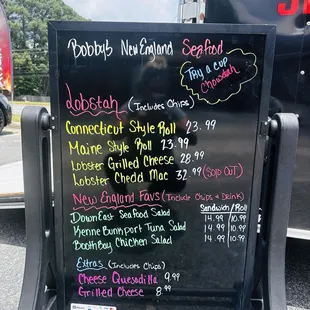 Bobby's New England Seafood
Try a cup
chowdah
Lobstah (Includes Chips)
Connecticut Style Roll 23.99
Maine Style Roll 23.99
Lobster Grilled Cheese 28.99
Lobster Chedd Mac 32.99 (Sold Out)
New England Favs (Include Chips & Drink)
Sandwich / Roll
Down East Seafood Salad 14.99 / 10.99
Kennebunkport Tuna Salad 14.99 / 10.99
Booth Bay Chicken Salad 14.99 / 10.99
Extras (Includes Chips)
Cheese Quesadilla 9.99
Grilled Cheese 8.99